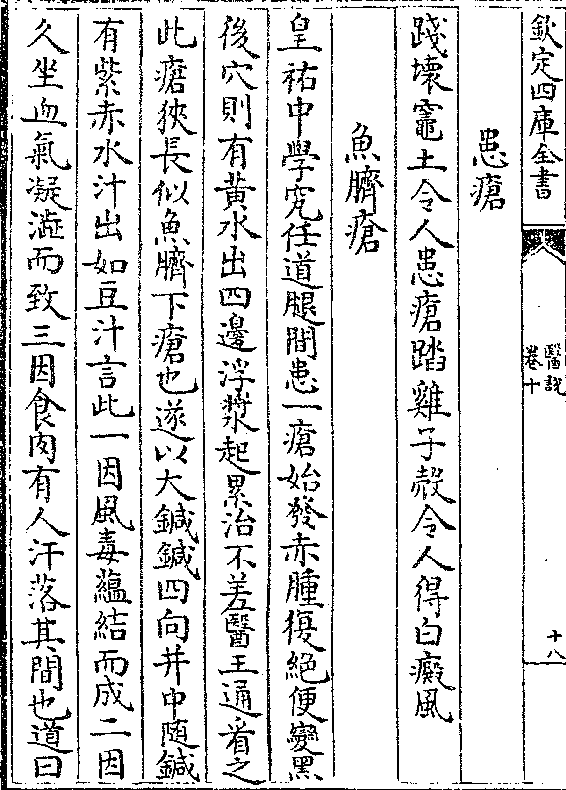 欽定四庫全書
醫說
卷十
十八
患瘡
踐壞竈土令人患瘡踏雞子殻令人得白癜風
魚臍瘡
皇祐中學究任道腿間患一瘡始發赤腫復絕便變黑
後穴則有黃水出四邊浮漿起累治不差醫王通看之
此瘡狹長似魚臍下瘡也遂以大鍼鍼四向并中随鍼
有紫赤水汁出如豆汁言此一因風毒蘊結而成二因
久坐血氣凝澁而致三因食肉有人汗落其間也道曰